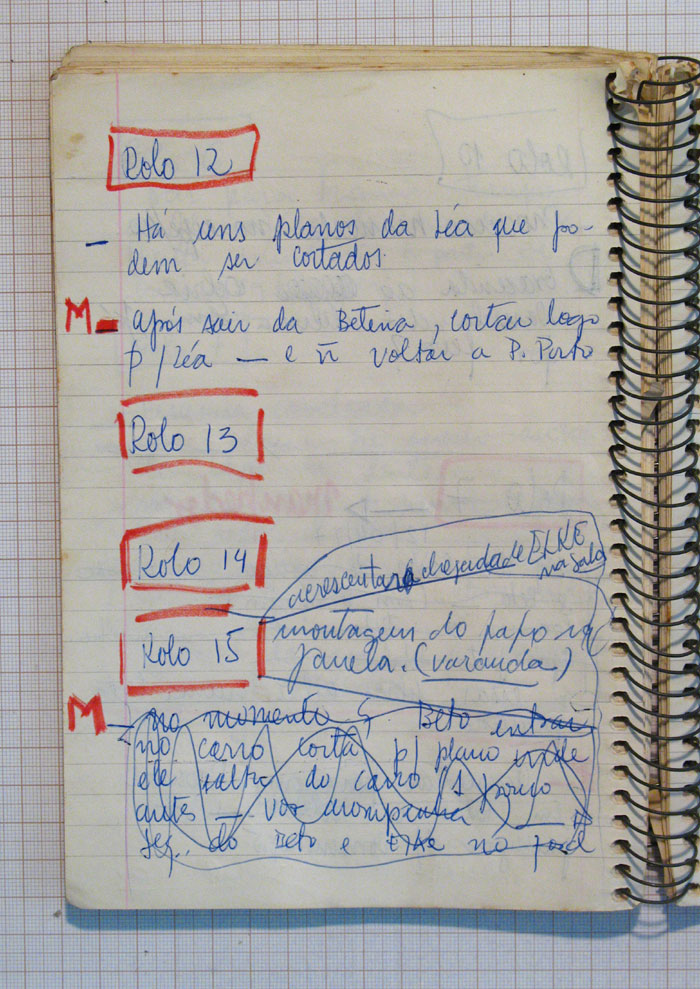 Rolo 12
– Há uns planos da Léa que po-
dem ser cortados.
M – após sair da Beteria, cortar logo
p/ Léa — e ñ voltar a P. Porto
Rolo 13
Rolo 14
acrescentar chegada de ELKE
na sala
Rolo 15
montagem do papo na
janela. (varanda)
M – no momento q Beto entrar
no carro corta p/ plano onde
ele salta do carro (1 pouco
antes — vai acompanhar) —
seq. do Beto e Elke no